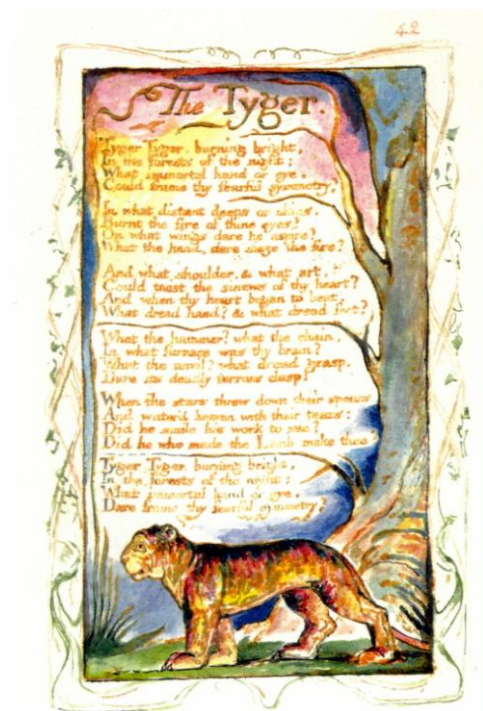 42
The Tyger.
Tyger Tyger, burning bright,
In the forests of the night:
What immortal hand or eye,
Could frame thy fearful symmetry?
In what distant deeps or skies.
Burnt the fire of thine eyes?
On what wings dare he aspire?
What the hand, dare sieze the fire?
And what shoulder, & what art,
Could twist the sinews of thy heart?
And when thy heart began to beat,
What dread hand? & what dread feet?
What the hammer? what the chain,
In what furnace was thy brain?
What the anvil? what dread grasp,
Dare its deadly terrors clasp?
When the stars threw down their spears
And water'd heaven with their tears:
Did he smile his work to see?
Did he who made the Lamb make thee?
Tyger Tyger burning bright,
In the forests of the night:
What immortal hand or eye,
Dare frame thy fearful symmetry?